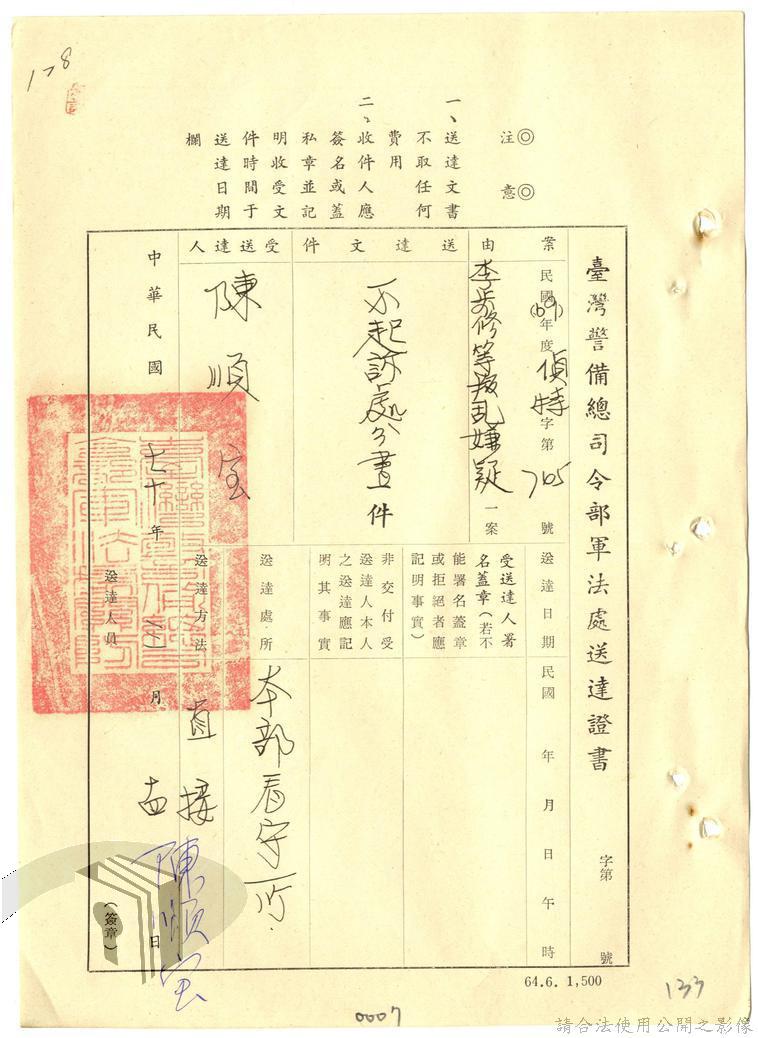 178
◎注意◎
一、送達文書
不取任何
費用
二、收件人應
簽名或蓋
私章並記
明收受文
件時間于
送達日期
欄
臺灣警備總司令部軍法處送達證書
字第
號
案由
民國(69)年度偵特字第705號
李步修等叛乱嫌疑一案
送達文件
不起訴處分書件
受送達人
陳順宝
送達日期
民國 年 月 日 午 時
受送達人署
名蓋章(若不
能署名蓋章
或拒絕者應
記明事實)
非交付受
送達人本人
之送達應記
明其事實
送達處所
本部看守所
送達方法
直接
中華民國七十年 月 日
送達人員
(簽章)
陳順宝
64.6. 1,500
133
0007
請合法使用公開之影像